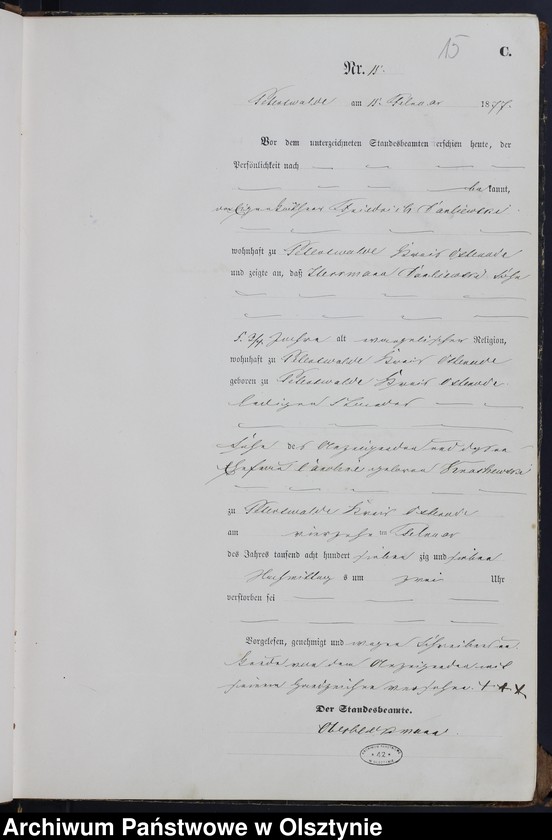 15
C.
Nr. 15.
am 15. Februar 1877.
Vor dem unterzeichneten Standesbeamten erschien heute, der
Persönlichkeit nach
bekannt,
Friedrich
wohnhaft zu Kreis Osterode
und zeigte an, daß Herrmann Sohn
5 3/4 Jahre alt evangelischer Religion,
wohnhaft zu Kreis Osterode
geboren zu Kreis Osterode
ledigen Standes
Sohn des Anzeigenden und dessen
Ehefrau Caroline geborene
zu Kreis Osterode
am vierzehn ten Februar
des Jahres tausend acht hundert sieben zig und sieben
Nachmittags um zwei Uhr
verstorben sei
Vorgelesen, genehmigt und wegen Schreibensun
kunde von dem Anzeigenden mit
seinem Handzeichen versehen. + + +
Der Standesbeamte.
Archiwum Państwowe w Olsztynie